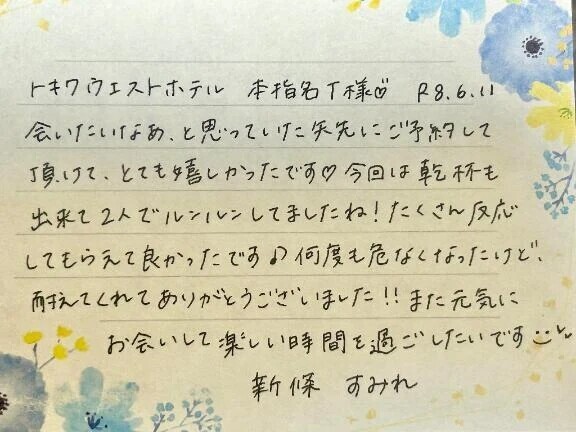 トキワウエストホテル 本指名T様♡ R8.6.11
会いたいなあ、と思っていた矢先にご予約して
頂けて、とても嬉しかったです♡今回は乾杯も
出来て2人でルンルンしてましたね!たくさん反応
してもらえて良かったです♪何度も危なくなったけど、
耐えてくれてありがとうございました!!また元気に
お会いして楽しい時間を過ごしたいです
新條 すみれ